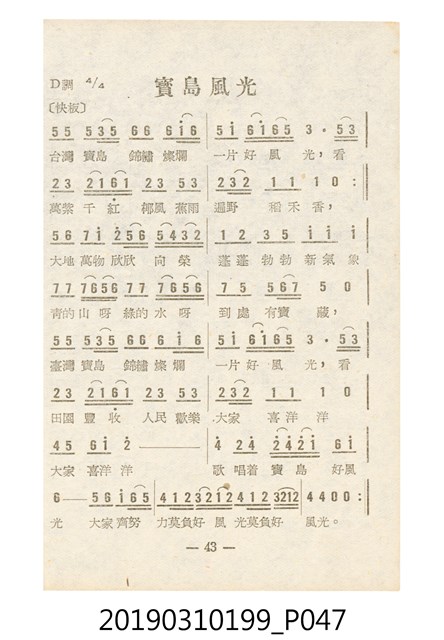 寶島風光
D調 4/4
〔快板〕
55 535 66 6i6 5i 6i65 3・53
台灣 寶島 錦繡 燦爛 一片 好 風 光，看
23 2161 23 53 232 11 10:
萬紫 千紅 椰風 蕉雨 遍野 稻禾 香，
56 7i 256 5432 12 35 iii
大地 萬物 欣欣 向 榮 蓬蓬 勃勃 新氣象
77 7656 77 7656 75 567 50
靑的 山呀 綠的 水呀 到處 有寶 藏，
55 535 66 6i6 5i 6i65 3・53
臺灣 寶島 錦繡 燦爛 一片 好 風 光，看
23 2161 23 2161 23 232 11 10
田園 豐收 人民 歡樂 大家 喜洋 洋
45 6i 2—— 4 24 2421 6i
大家 喜洋 洋 歌 唱着 寶島 好風
6— 56 i65 412 3212 412 3212 4400:
光 大家 齊努 力莫負好 風 光莫負好 風光。
— 43 —
20190310199_P047